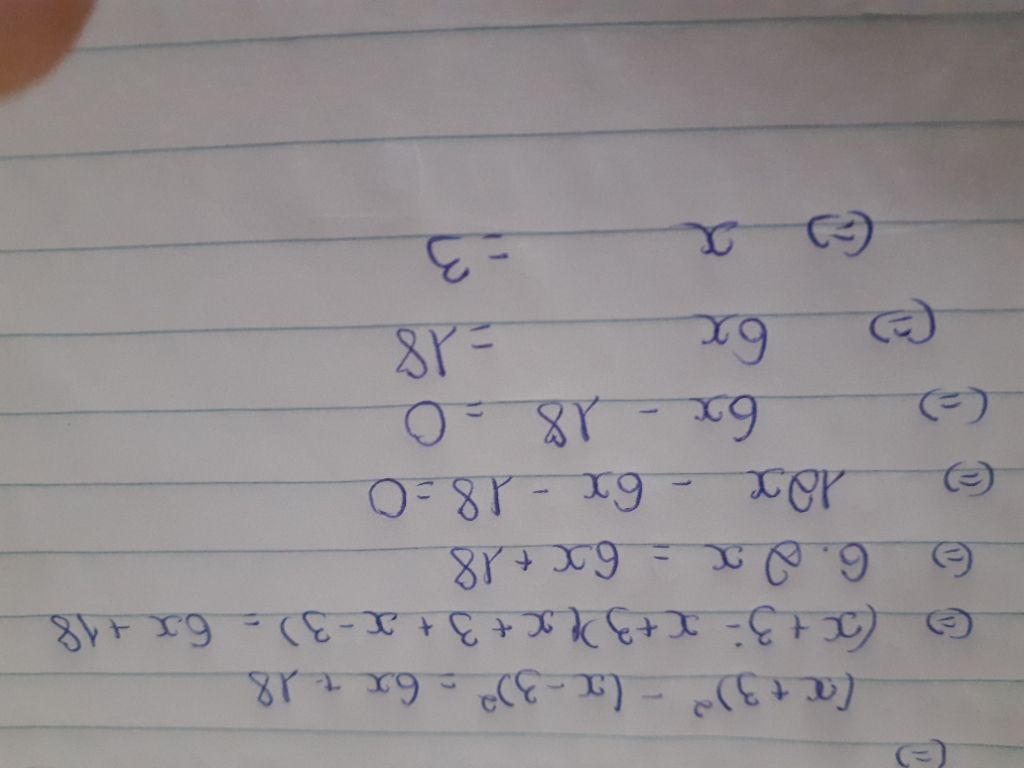 (=)
(x+3)² - (x-3)² = 6x + 18
(=) (x+3-x+3)(x+3+x-3) = 6x+18
(=) 6.2x = 6x+18
(=) 12x - 6x - 18 = 0
(=) 6x - 18 = 0
(=) 6x = 18
(=) x = 3